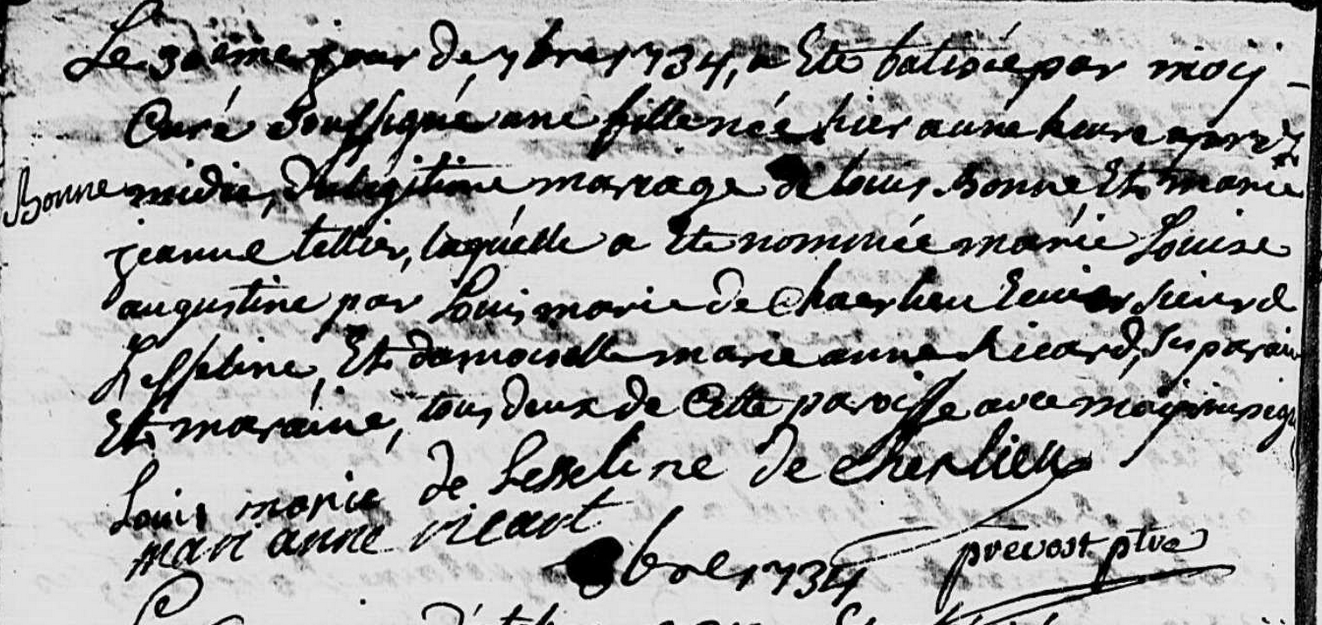 Le 30ieme jour de 7bre 1734, a Ete batisée par moÿ
Curé Soussigné une fille née hier a une heure apres
Bonne
midu, du légitime mariage de louis Bonne Et marie
jeanne tellier, laquelle a Ete nommée marie Louise
augustine par Louis marie de Chaerlieu Ecuier Sieur d
Lesseline, Et damoiselle marie anne Ricard, Ses parain
Et maraine, tous deux de Cette paroisse avec moÿ
Louis marie de Lesseline de cherlieu
mari anne ricart
prevost ptre
8bre 1734